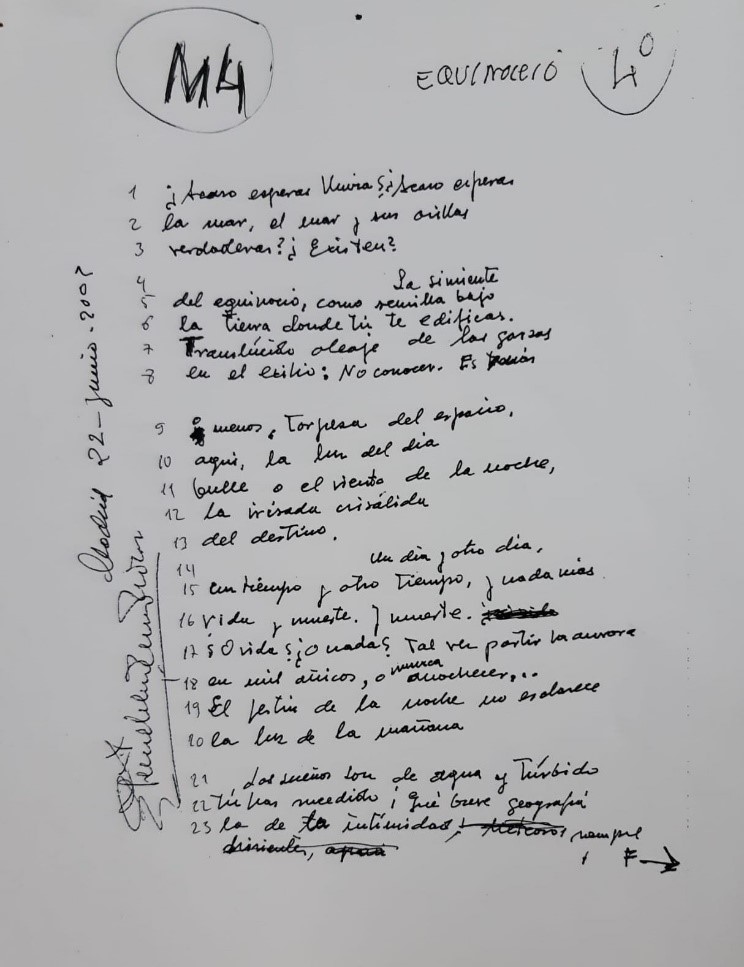 M4
EQUINOCCIO 4º
1 ¿Acaso esperas lluvia? ¿Acaso esperas
2 la mar, el mar y sus orillas
3 verdaderas? ¿Existen?
4 La simiente
5 del equinoccio, como semilla bajo
6 la tierra donde tú te edificas.
7 Translúcido oleaje de las garzas
8 en el exilio: No conocer. Es
9 menos. Torpeza del espacio,
10 aquí, la luz del día
11 bulle o el viento de la noche,
12 la irisada crisálida
13 del destino.
14 Un día y otro día,
15 un tiempo y otro tiempo, y nada más
16 vida y muerte. Y muerte.
17 ¿O vida? ¿O nada? Tal vez partir la aurora
18 en mil añicos, o nunca anochecer...
19 El festín de la noche no esclarece
20 la luz de la mañana
21 Los sueños son de agua y túrbido
22 tú has sucedido ¡Qué breve geografía
23 la de tu intimidad!
F→
Madrid 22-junio-2002